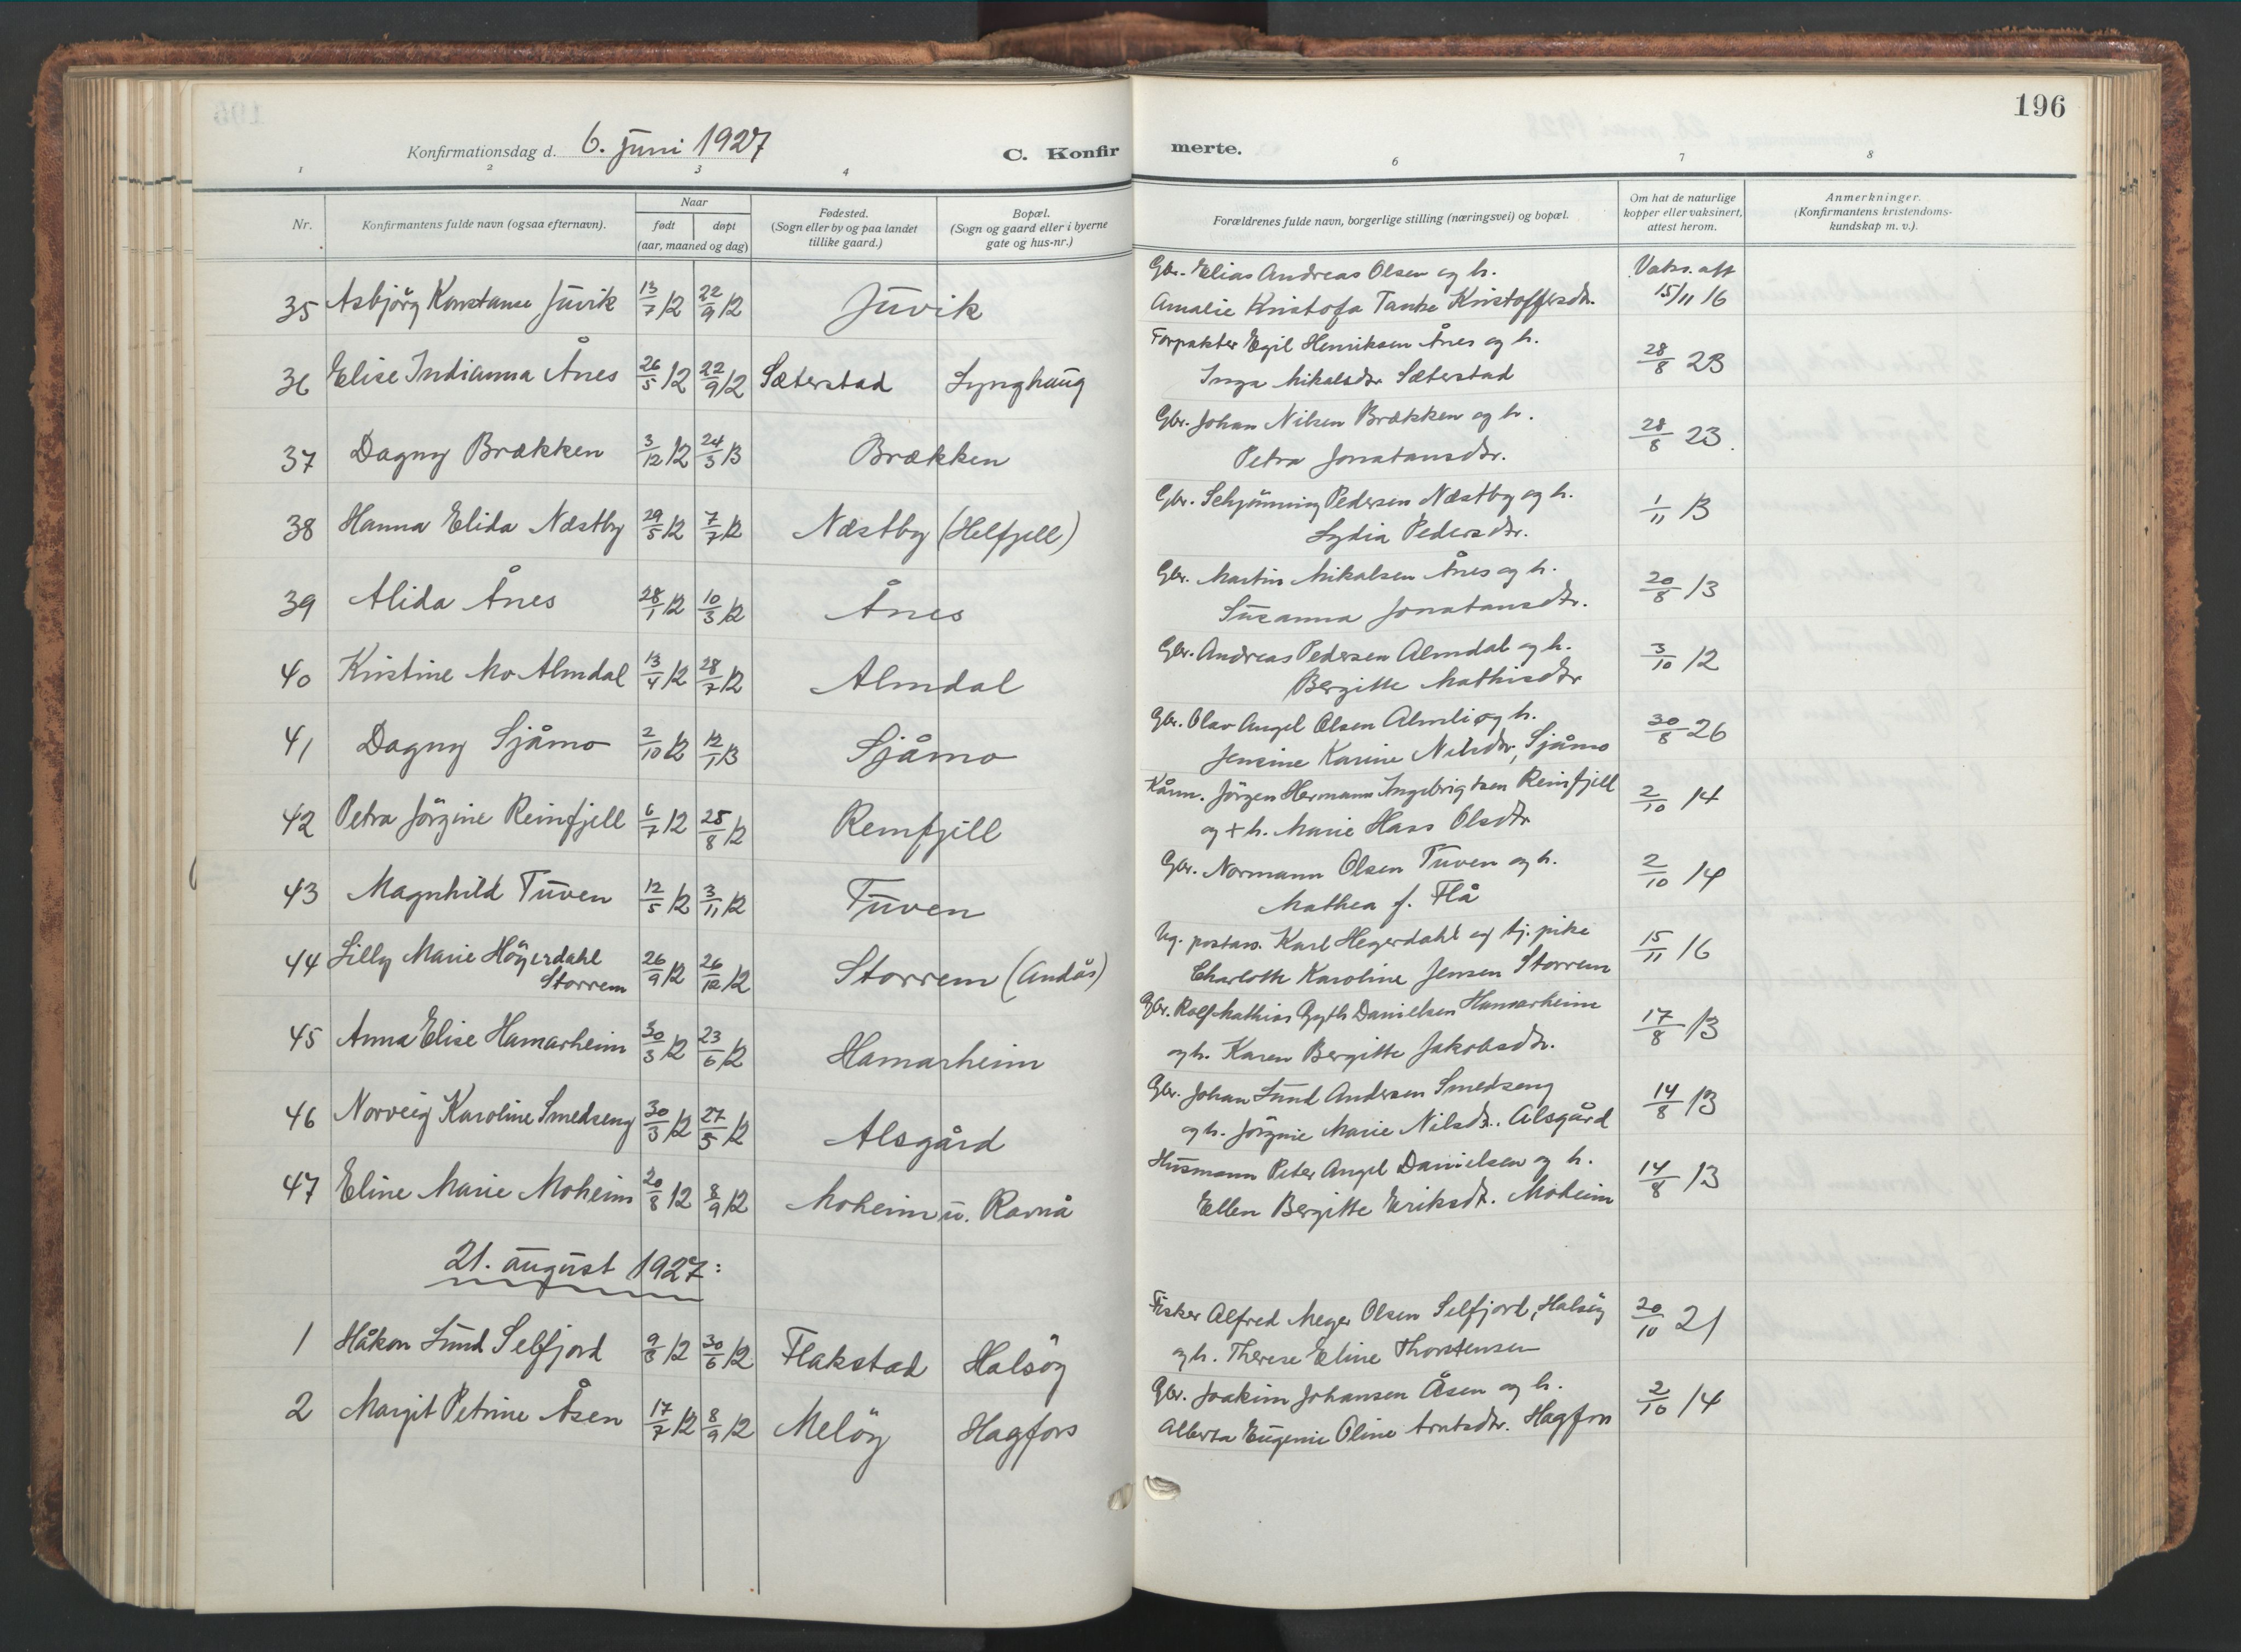 196
Konfirmationsdag d. 6. juni 1927
C. Konfirmerte.
1 2 3 4 6 7 8
Nr.
Konfirmantens fulde navn (ogsaa efternavn).
Naar
født døpt
(aar, maaned og dag)
Fødested.
(Sogn eller by og paa landet
tillike gaard.)
Bopæl.
(Sogn og gaard eller i byerne
gate og hus-nr.)
Forældrenes fulde navn, borgerlige stilling (næringsvei) og bopæl.
Om hat de naturlige
kopper eller vaksinert,
attest herom.
Anmerkninger.
(Konfirmantens kristendoms-
kundskap m. v.).
35 Asbjörg Konstanse Juvik 13/7 12 22/9 12 Juvik
Gbr. Elias Andreas Olsen og h.
Amalie Kristofa Tanke Kristoffersdtr.
Vaks. att
15/11 16
36 Elise Indianna Ånes 26/5 12 22/9 12 Sæterstad Lynghaug
Forpakter Egil Henriksen Ånes og h.
Inga Mikalsdtr Sæterstad
28/8 23
37 Dagny Brækken 3/12 12 24/3 13 Brækken
Gbr. Johan Nilsen Brækken og h.
Petra Jonatansdtr.
28/8 23.
38 Hanna Elida Næstby 29/5 12 7/7 12 Næstby (Helfjell)
Gbr. Schjönning Pedersen Næstby og h.
Lydia Pedersdtr.
1/11 13
39 Alida Ånes 28/1 12 10/3 12 Ånes
Gbr. Martin Mikalsen Ånes og h.
Susanna Jonatansdtr.
20/8 13
40 Kristine Mo Almdal 13/4 12 28/7 12 Almdal
Gbr. Andreas Pedersen Almdal og h.
Bergitte Mathisdtr
3/10 12
41 Dagny Sjåmo 2/10 12 12/1 13 Sjåmo
Gbr. Olav Angel Olsen Almli og h.
Jensine Karine Nilsdtr, Sjåmo
30/8 26
42 Petra Jörgine Reinfjell 6/7 12 25/8 12 Reinfjell
Kårm. Jörgen Hermann Ingebrigtsen Reinfjell
og + h. Marie Hass Olsdtr
2/10 14
43 Magnhild Tuven 12/5 12 3/11 12 Tuven
Gbr. Normann Olsen Tuven og h.
Mathea f. Flå
2/10 14
44 Lilly Marie Högerdahl
Storrem 26/9 12 26/12 12 Storrem (Andås)
Ug. postass. Karl Hegerdahl og tj.pike
Charlotte Karoline Jensen Storrem
15/11 16
45 Anna Elise Hamarheim 30/3 12 23/6 12 Hamarheim
Gbr. Rolf Mathias Gyth Danielsen Hamarheim
og h. Karen Bergitte Jakobsdtr.
17/8 13
46 Norveig Karoline Smedseng 30/3 12 27/5 12 Alsgård
Gbr. Johan Lund Andersen Smedseng
og h. Jörgine Marie Nilsdtr. Alsgård
14/8 13
47 Eline Marie Moheim 20/8 12 8/9 12 Moheim u. Ravnå
Husmann Peter Angel Danielsen og h.
Ellen Bergitte Eriksdtr. Moheim
14/8 13
21. august 1927:
1 Håkon Lund Selfjord 9/3 12 30/6 12 Flakstad Halsöy
Fisker Alfred Meyer Olsen Selfjord, Halsöy
og h. Therese Eline Thorstensen
20/10 21
2 Margit Petrine Åsen 17/7 12 8/9 12 Melöy Hagfors
Gbr. Joakim Johansen Åsen og h.
Alberta Eugenie Oline Arntsdtr. Hagfors
2/10 14